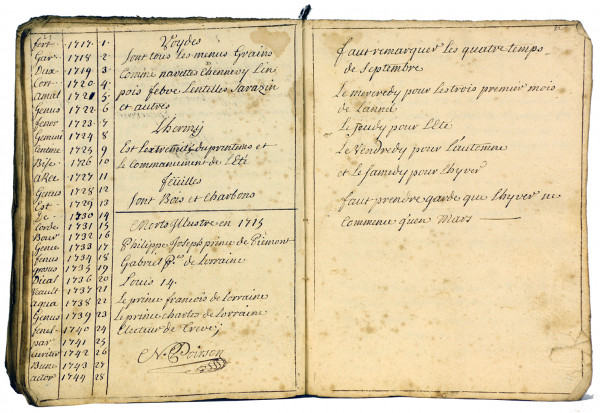 fert 1717 1
Gar 1718 2
Dux 1719 3
Cor 1720 4
Amat 1721 5
Genus 1722 6
fenor 1723 7
Gemini 1724 8
Centime 1725 9
Bise 1726 10
aRet 1727 11
Genus 1728 12
Est 1729 13
De 1730 14
Corde 1731 15
Bour 1732 16
Genus 1733 17
fenus 1734 18
1735 19
Dicat 1736 20
1737 21
aqua 1738 22
Genus 1739 23
fenel 1740 24
par 1741 25
1742 26
Bunc 1743 27
actor 1744 28
Voydes
Sont tous les menus Grains
Comme navettes Chennevy Lin
pois febve Lentilles Sarazin
et autres
Est les du printems et
le Commancement de l'Eté
feüilles
Sont Bois et Charbons
Morts Illustre en 1715
Philippe Joseph prince de Piemont
Gabriel Pce de Lorraine
Louis 14.
Le prince francois de Lorraine
Le prince charles de Lorraine
Electeur de Treve
N. Poirson
faut remarquer les quatre temps
de Septembre
Le mercredy pour les trois premier mois
de Lanneé
Le Jeudy pour L'Eté
Le Vendredy pour L'autemne
et le Samedy pour Lhyver
faut prendre garde que Lhyver ne
Commence qu'en Mars